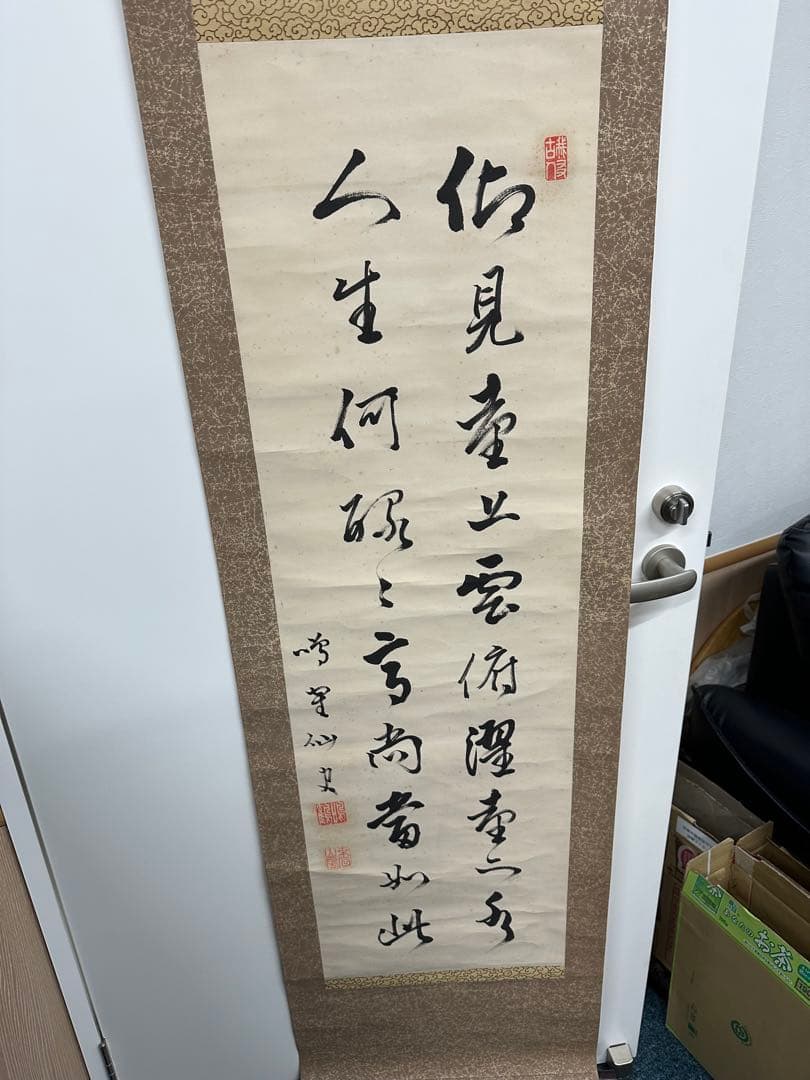 仰見臺上雲俯濯臺下水
人生何碌々高尚當如此
鳴
仙史
お茶